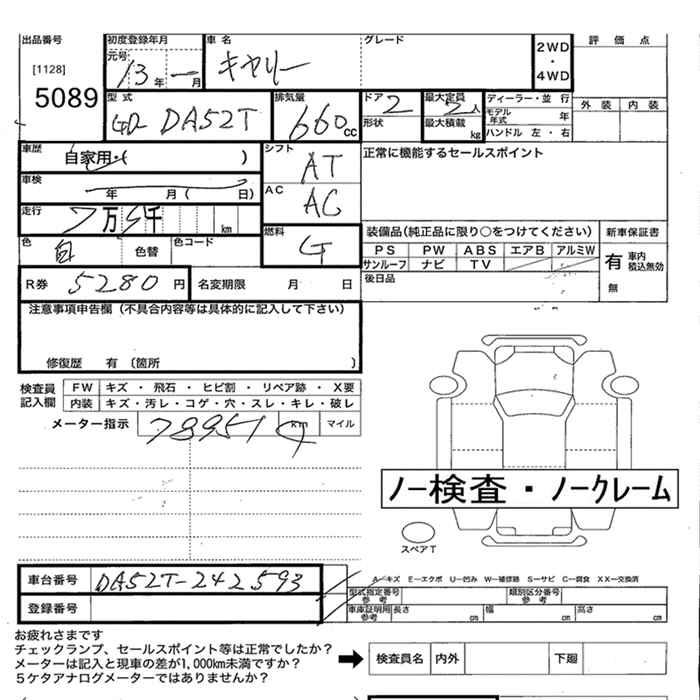 出品番号 初度登録年月 車名 グレード 2WD ・ 4WD 評価点
[1128] 元号 13年 一月 キャリー
5089 外装 内装
型式 GD DA52T 排気量 660 cc ドア 2 形状 最大定員 2人 最大積載 kg ディーラー・並行 モデル年式 年 ハンドル 左・右
車歴 自家用・( ) シフト AT 正常に機能するセールスポイント
車検 年 月( 日) AC AC
走行 7万 千 km 装備品(純正品に限り○をつけてください) 新車保証書
色 白 色替 色コード 燃料 G PS PW ABS エアB アルミW 有 車内積込無効
サンルーフ ナビ TV
R券 5280円 名変期限 月 日 後日品 無
注意事項申告欄(不具合内容等は具体的に記入して下さい)
修復歴 有(箇所 )
検査員 FW キズ・飛石・ヒビ割・リペア跡・X要
記入欄 内装 キズ・汚レ・コゲ・穴・スレ・キレ・破レ
メーター指示 78951 km マイル
ノー検査・ノークレーム
スペアT
車台番号 DA52T-242593 A—キズ E—エクボ U—凹み W—補修跡 S—サビ C—腐食 XX—交換済
型式指定番号 参考 類別区分番号 参考
登録番号 車庫証明用 参考 長さ cm 幅 cm 高さ cm
お疲れさまです
チェックランプ、セールスポイント等は正常でしたか?
メーターは記入と現車の差が1,000km未満ですか? 検査員名 内外 下廻
5ケタアナログメーターではありませんか?